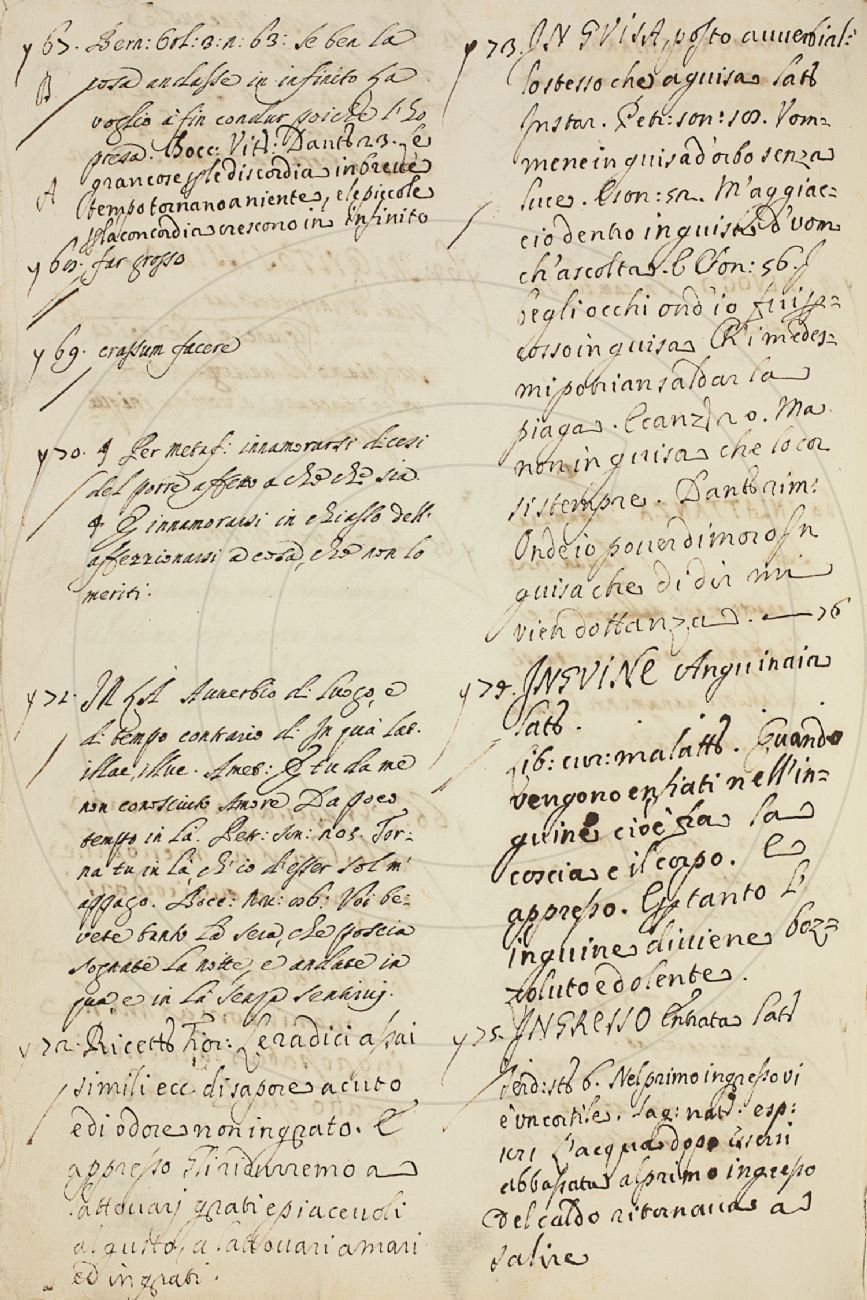 y 67. Bern: Orl: 2: n: 63: Se ben la
B cosa andasse in infinito ha
voglio à fin condur poiche l'ho
presa. Bocc: Vit: Dant: 23. Le
gran cose ple discordia in breve
A tempo tornano a niente, e le piccole
pla concordia crescono in infinito
y 68. far grosso
y 69. crassum facere
y 70. ¶ Per metaf: innamorarsi dicesi
del porre affetto a chè chè sia
¶ E innamorarsi in chiasso dell'
affezzionarsi a cosa, che non lo
meriti.
y 71. IN LA Avverbio di luogo, e
di tempo contrario di In quà lat.
illac, illuc. Amet: E tu da me
non conosciuto Amore Da poco
tempo in là. Petr: Son: 105. Tor-
na tu in là, ch'io d'esser sol m'
appago. Bocc: Nov: 86: Voi be-
vete tanto la sera, che poscia
sognate la notte, e andate in
qua e in là senza sentirvi.
y 72. Ricett: Fior: Le radici assai
simili ecc. di sapore acuto
e di odore non ingrato. E
appresso Si ridurremo a
lattovarj grati e piacevoli
al gusto, a lattovari amari
ed ingrati.
y 73. IN GVISA, posto avverbial:
lo stesso che a guisa lat:
Instar. Petr: son: 18. Vom=
mene in guisa d'orbo senza
luce. E son: 52. M'aggiac=
cio dentro in guisa d'vom
ch'ascolta. E Son: 56. I
begli occhi ond'io fui p=
cosso in guisa Ch'i medes=
mi potrian saldar la
piaga. E canz: 20. Ma
non in guisa che lo cor
si stempre. Dant: rim:
Onde io pover dimoro In
guisa che di dir mi
vien dottanza. — 76
y 74. INGVINE Anguinaia
lat:
Lib: cur: malatt: Quando
vengono enfiati nell'in=
guine cioè fra la
coscia e il corpo. E
appresso. E p tanto l'
inguine diviene boz=
zoluto e dolente.
y 75. INGRESSO Entrata lat:
Serd: st: 6. Nel primo ingresso vi
è un cortile. Sag: nat: esp:
L'acqua dopo essersi
abbassata al primo ingresso
Del caldo ritornava a
salire